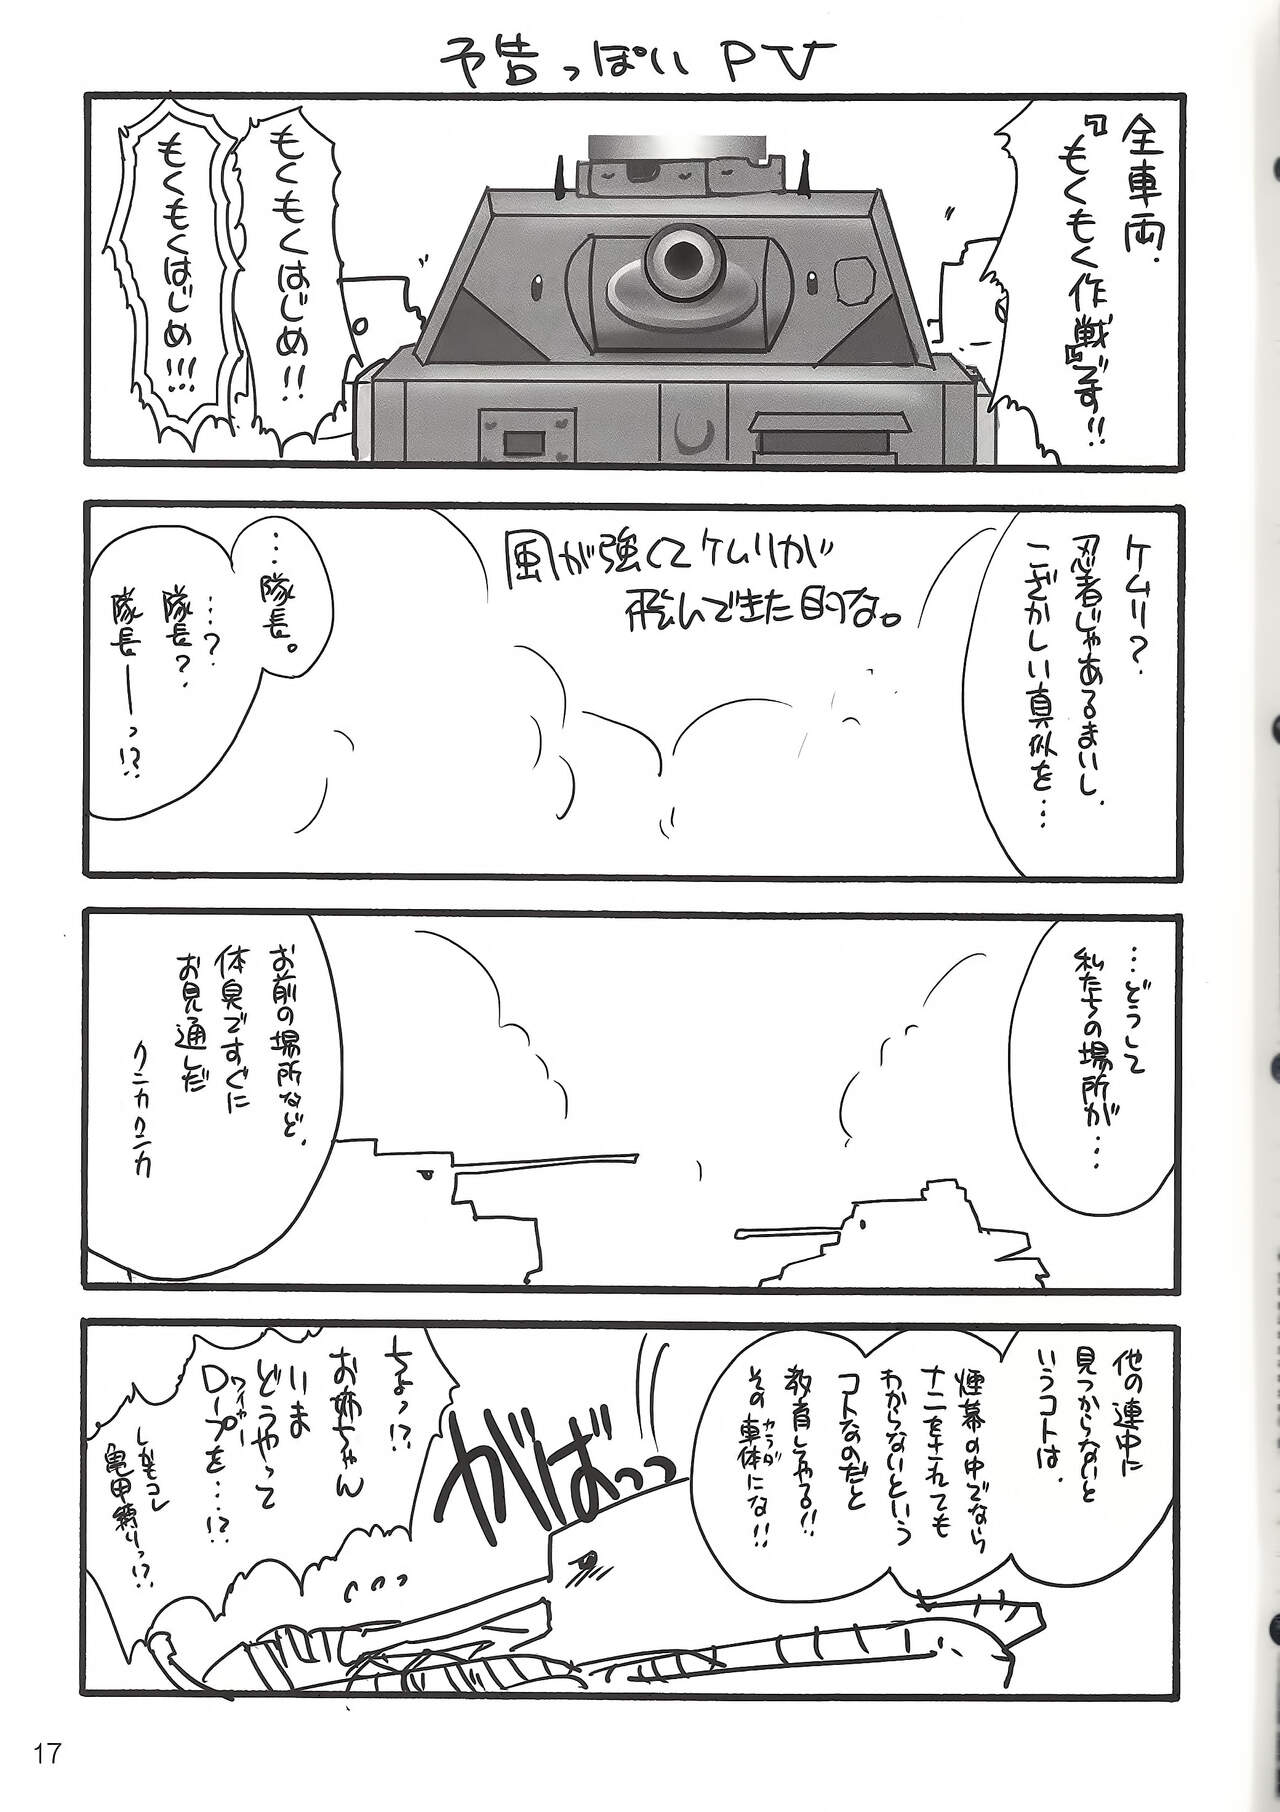 予告っぽいPV
全車両、
『もくもく作戦』です!!
もくもくはじめ!!
もくもくはじめ!!!
ケムリ?
忍者じゃあるまいし、
こざかしい真似を…
風が強くてケムリが
飛んできた的な。
…隊長。
…?
隊長?
隊長ーーっ!?
…どうして
私たちの場所が…
お前の場所など、
体臭ですぐに
お見通しだ
クニカクニカ
他の連中に
見つからないと
いうコトは、
煙幕の中でなら
ナニをされても
わからないという
コトなのだと
教育してやる!!
その車体にな!!
カラダ
がばっっ
ちょっ!?
お姉ちゃん
いま
どうやって
ロープを…!?
ワイヤー
しかもコレ
亀甲縛りっ!?
17